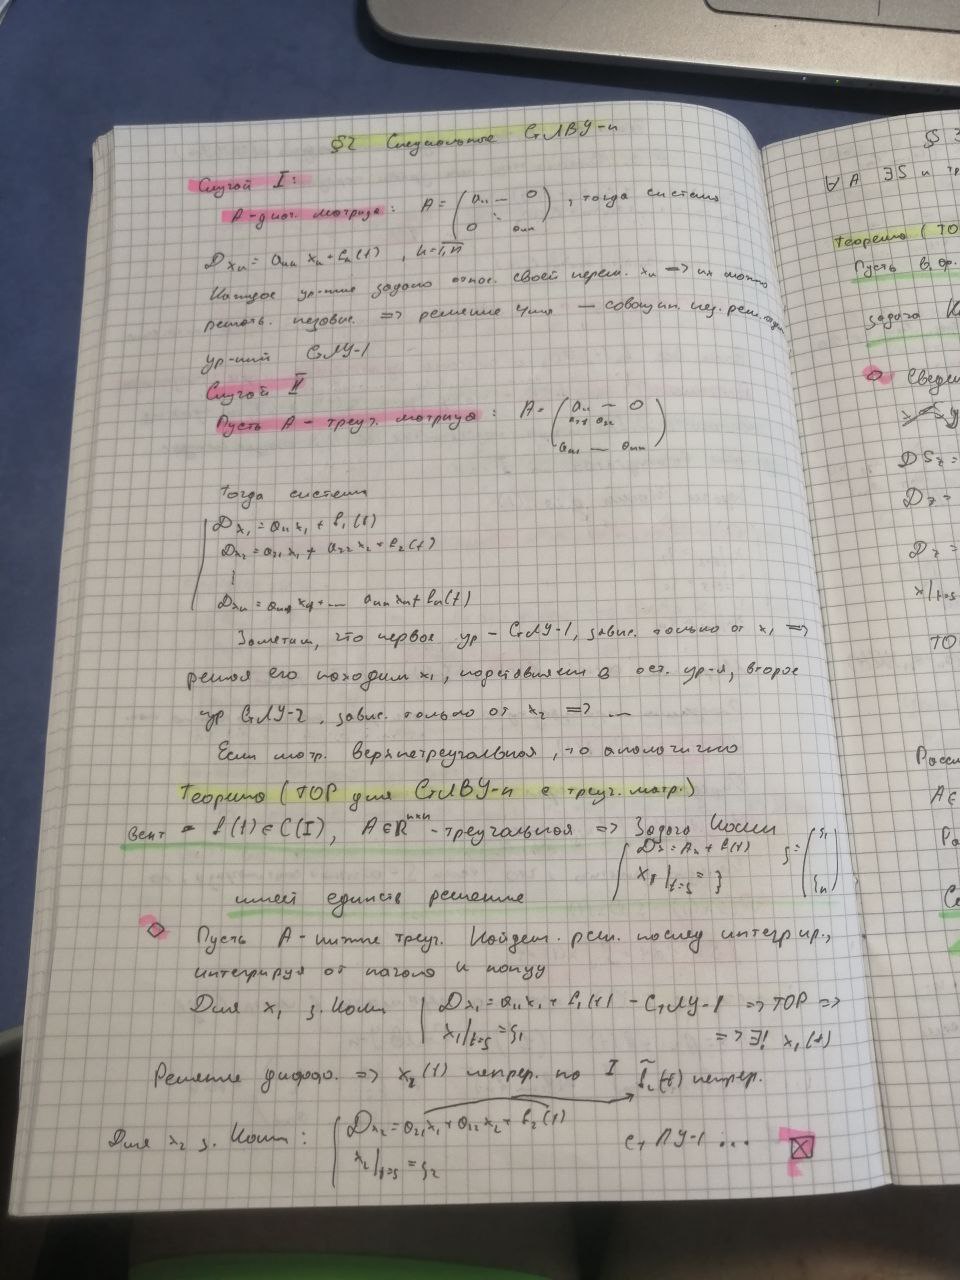 §2 Специальные СтЛВУ-n
Случай I:
А-диаг. матрица: A = (a₁₁ — 0 ⋱ 0 aₙₙ), тогда система
Dxₖ = aₖₖ xₖ + fₖ(t), k=1,n
Каждое ур-ние задано относ. своей перем. xₖ => их можно
решать независ. => решение — совокупн. нез. реш.
ур-ний СтЛУ-1
Случай II
Пусть А - треуг. матрица: A = (a₁₁ — 0 a₂₁ a₂₂ aₙ₁ — aₙₙ)
Тогда система
Dx₁ = a₁₁x₁ + f₁(t)
Dx₂ = a₂₁x₁ + a₂₂x₂ + f₂(t)
⋮
Dxₙ = aₙ₁x₁ + ... aₙₙxₙ + fₙ(t)
Заметим, что первое ур - СтЛУ-1, завис. только от x₁ =>
решая его находим x₁, подставляем в ост. ур-я, второе
ур СтЛУ-2, завис. только от x₂ => ...
Если матр. верхнетреугальная, то аналогично
Теорема (ТОР для СтЛВУ-n с треуг. матр.)
f(t)∈C(I), A∈ℝⁿˣⁿ - треугальная => Задача Коши
Dx = Ax + f(t)
x|t=s = ξ
ξ = (ξ₁ ξₙ)
имеет единств решение
◇ Пусть А - нижне треуг. Найдем. реш. послед интегрир.,
интегрируя от начала к концу
Для x₁ з. Коши Dx₁ = a₁₁x₁ + f₁(t) - СтЛУ-1 => ТОР =>
x₁|t=s = ξ₁ => ∃! x₁(t)
Решение => x₂(t) непрер. по I f̃₂(t) непрер.
Для x₂ з. Коши: Dx₂ = a₂₁x₁ + a₂₂x₂ + f₂(t) СтЛУ-1 ...
x₂|t=s = ξ₂
§ 3
∀ A ∃S и
Теорема (ТО
Пусть
задача
Сведем
DSz =
Dz =
Dz =
x|t=s
ТО
Рассм
A∈
Ра